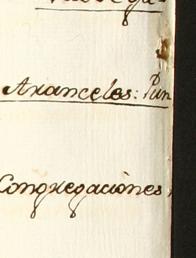 Aranceles: Pun
Congregaciones,